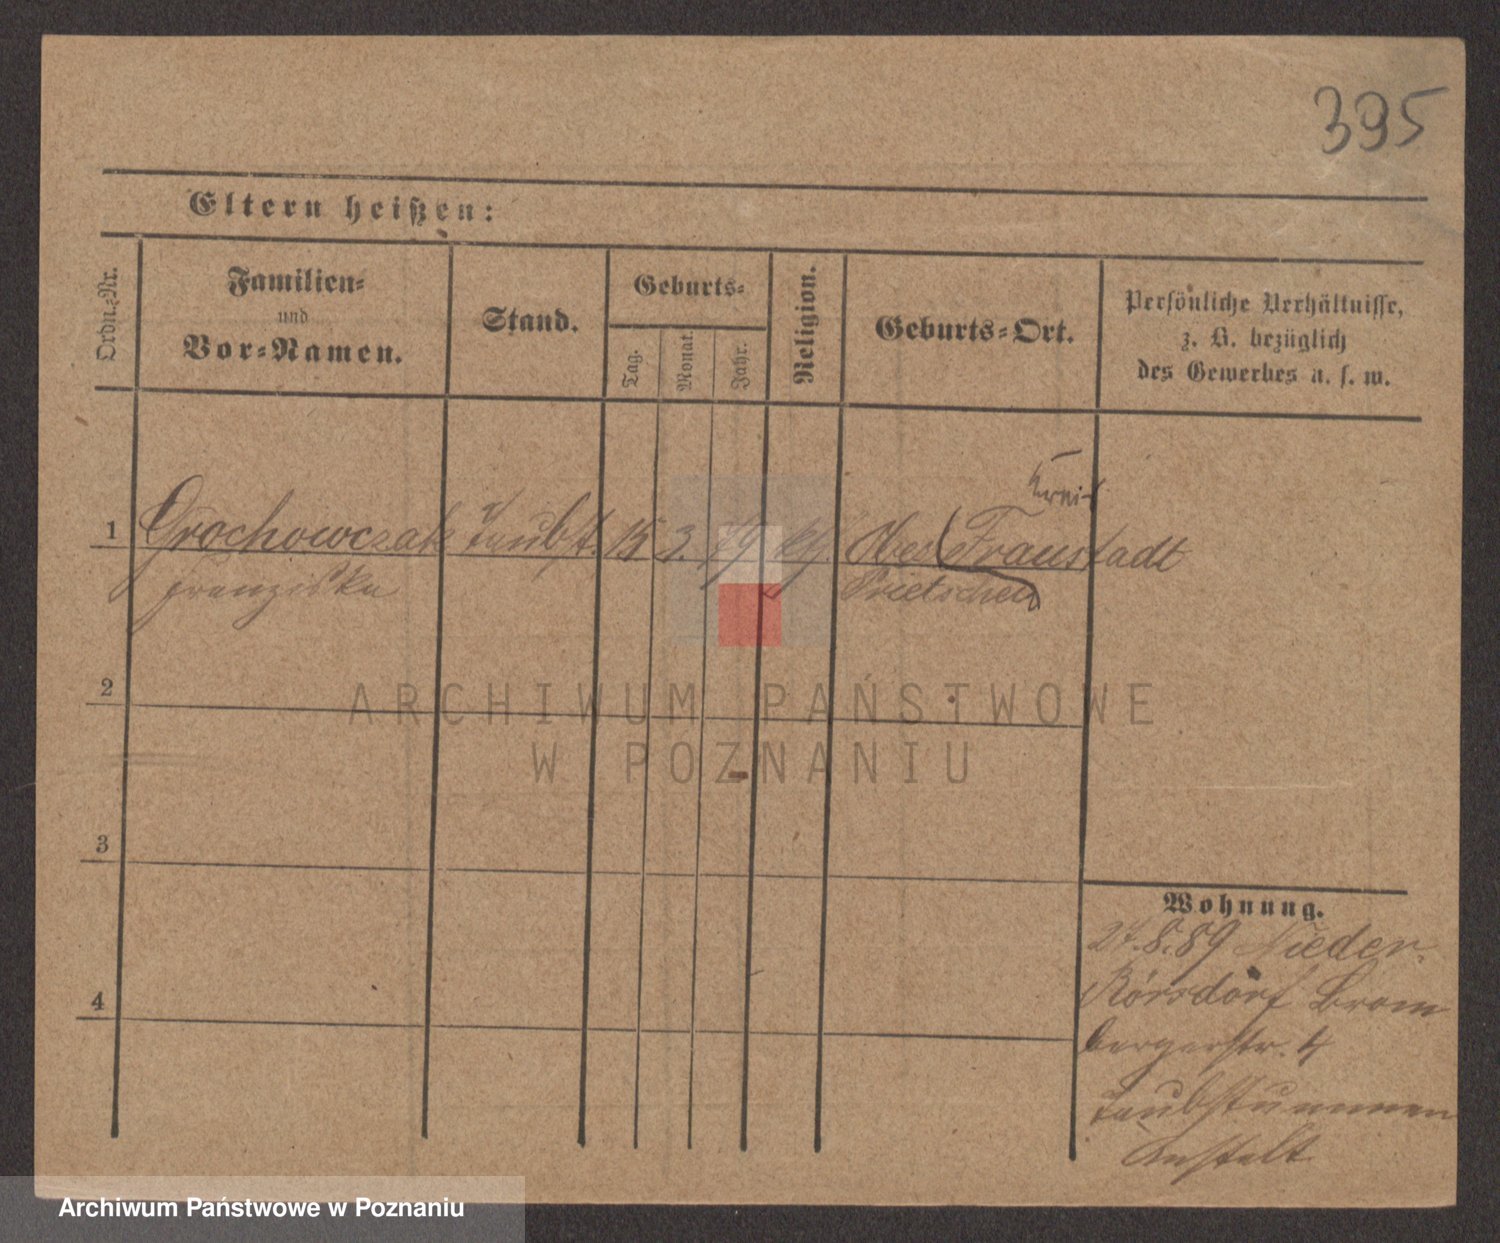 395
Eltern heißen:
Ordn.-Nr.
Familien-
und
Vor-Namen.
Stand.
Geburts-
Tag.
Monat.
Jahr.
Religion.
Geburts-Ort.
Persönliche Verhältnisse,
z. B. bezüglich
des Gewerbes u. s. w.
Kreis
1 Grochowczak taubst. 15 3. 79 kth. Ober Fraustadt
Franziska Prietschen
ARCHIWUM PAŃSTWOWE
W POZNANIU
2
3
4
Wohnung.
27.8.89 Nieder-
Rörsdorf Brom
bergerstr. 4
Taubstummen
Anstalt
Archiwum Państwowe w Poznaniu